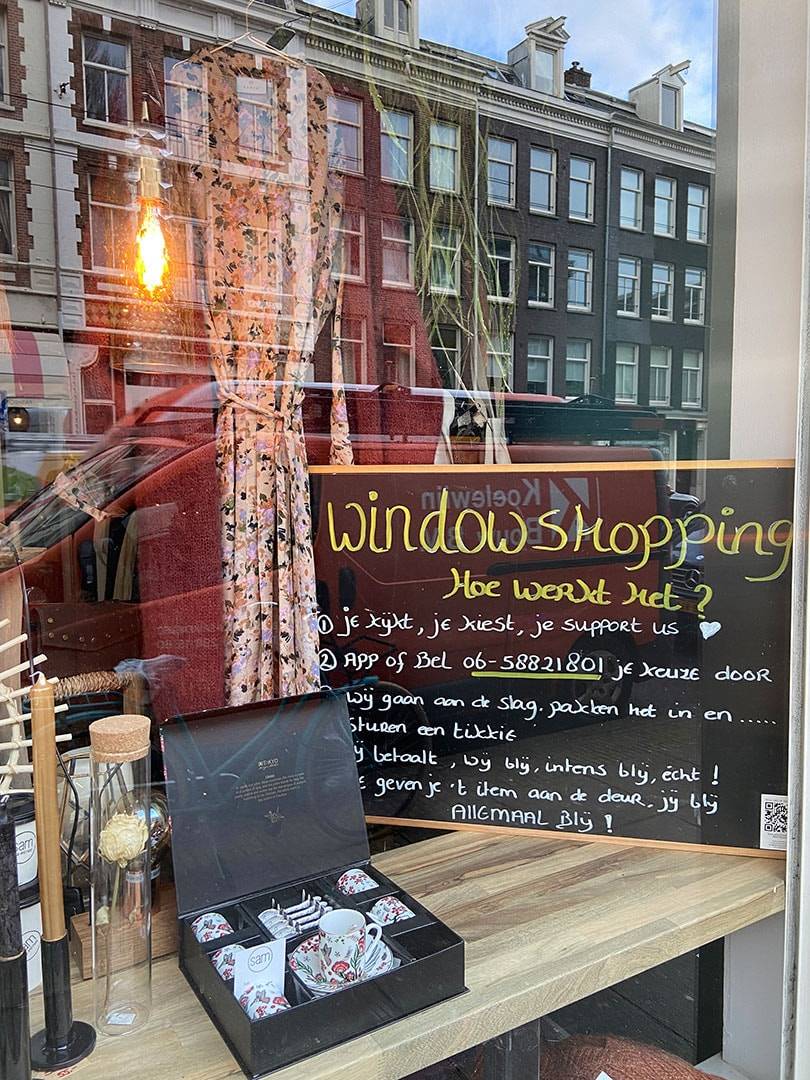 windowshopping
Hoe werkt het?
① je kijkt, je kiest, je support us
② App of Bel 06-58821801 je keuze door
wij gaan aan de slag. pakken het in en .....
sturen een tikkie
betaalt, wij blij, intens blij, écht!
geven je 't item aan de deur. jij blij
Allemaal Blij!
Koelewijn
sam
sam